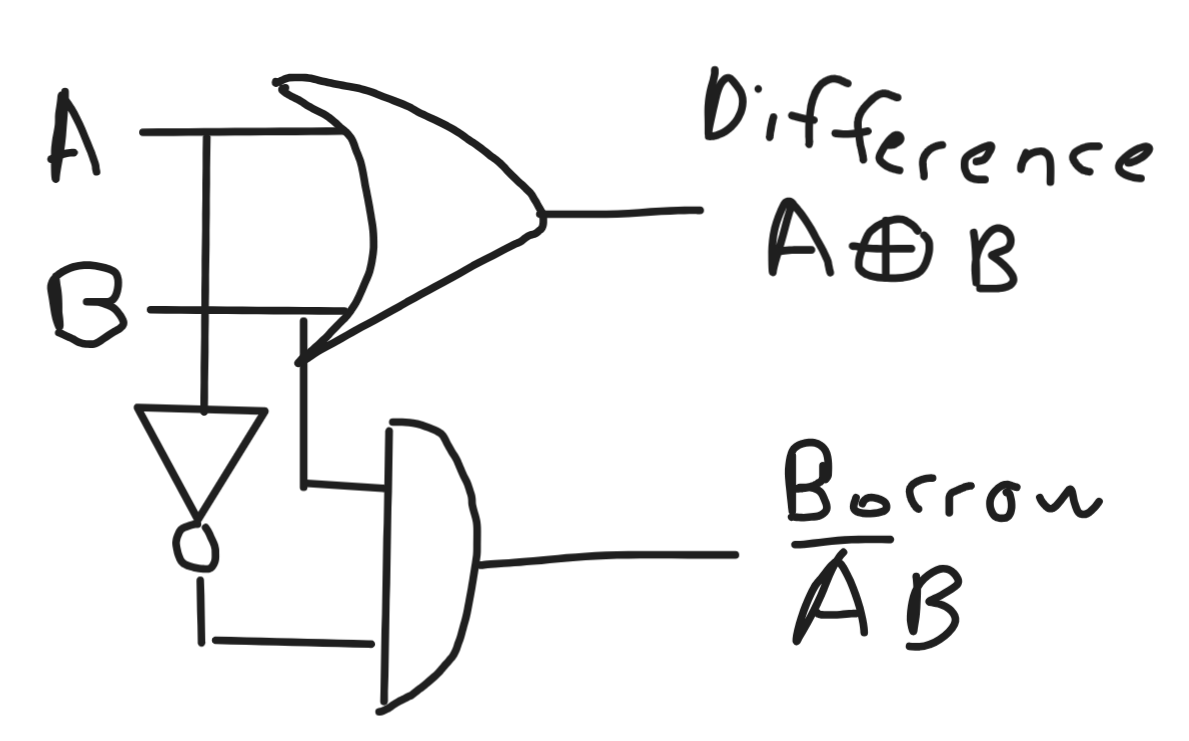 A
Difference
A⊕B
B
Borrow
A̅B